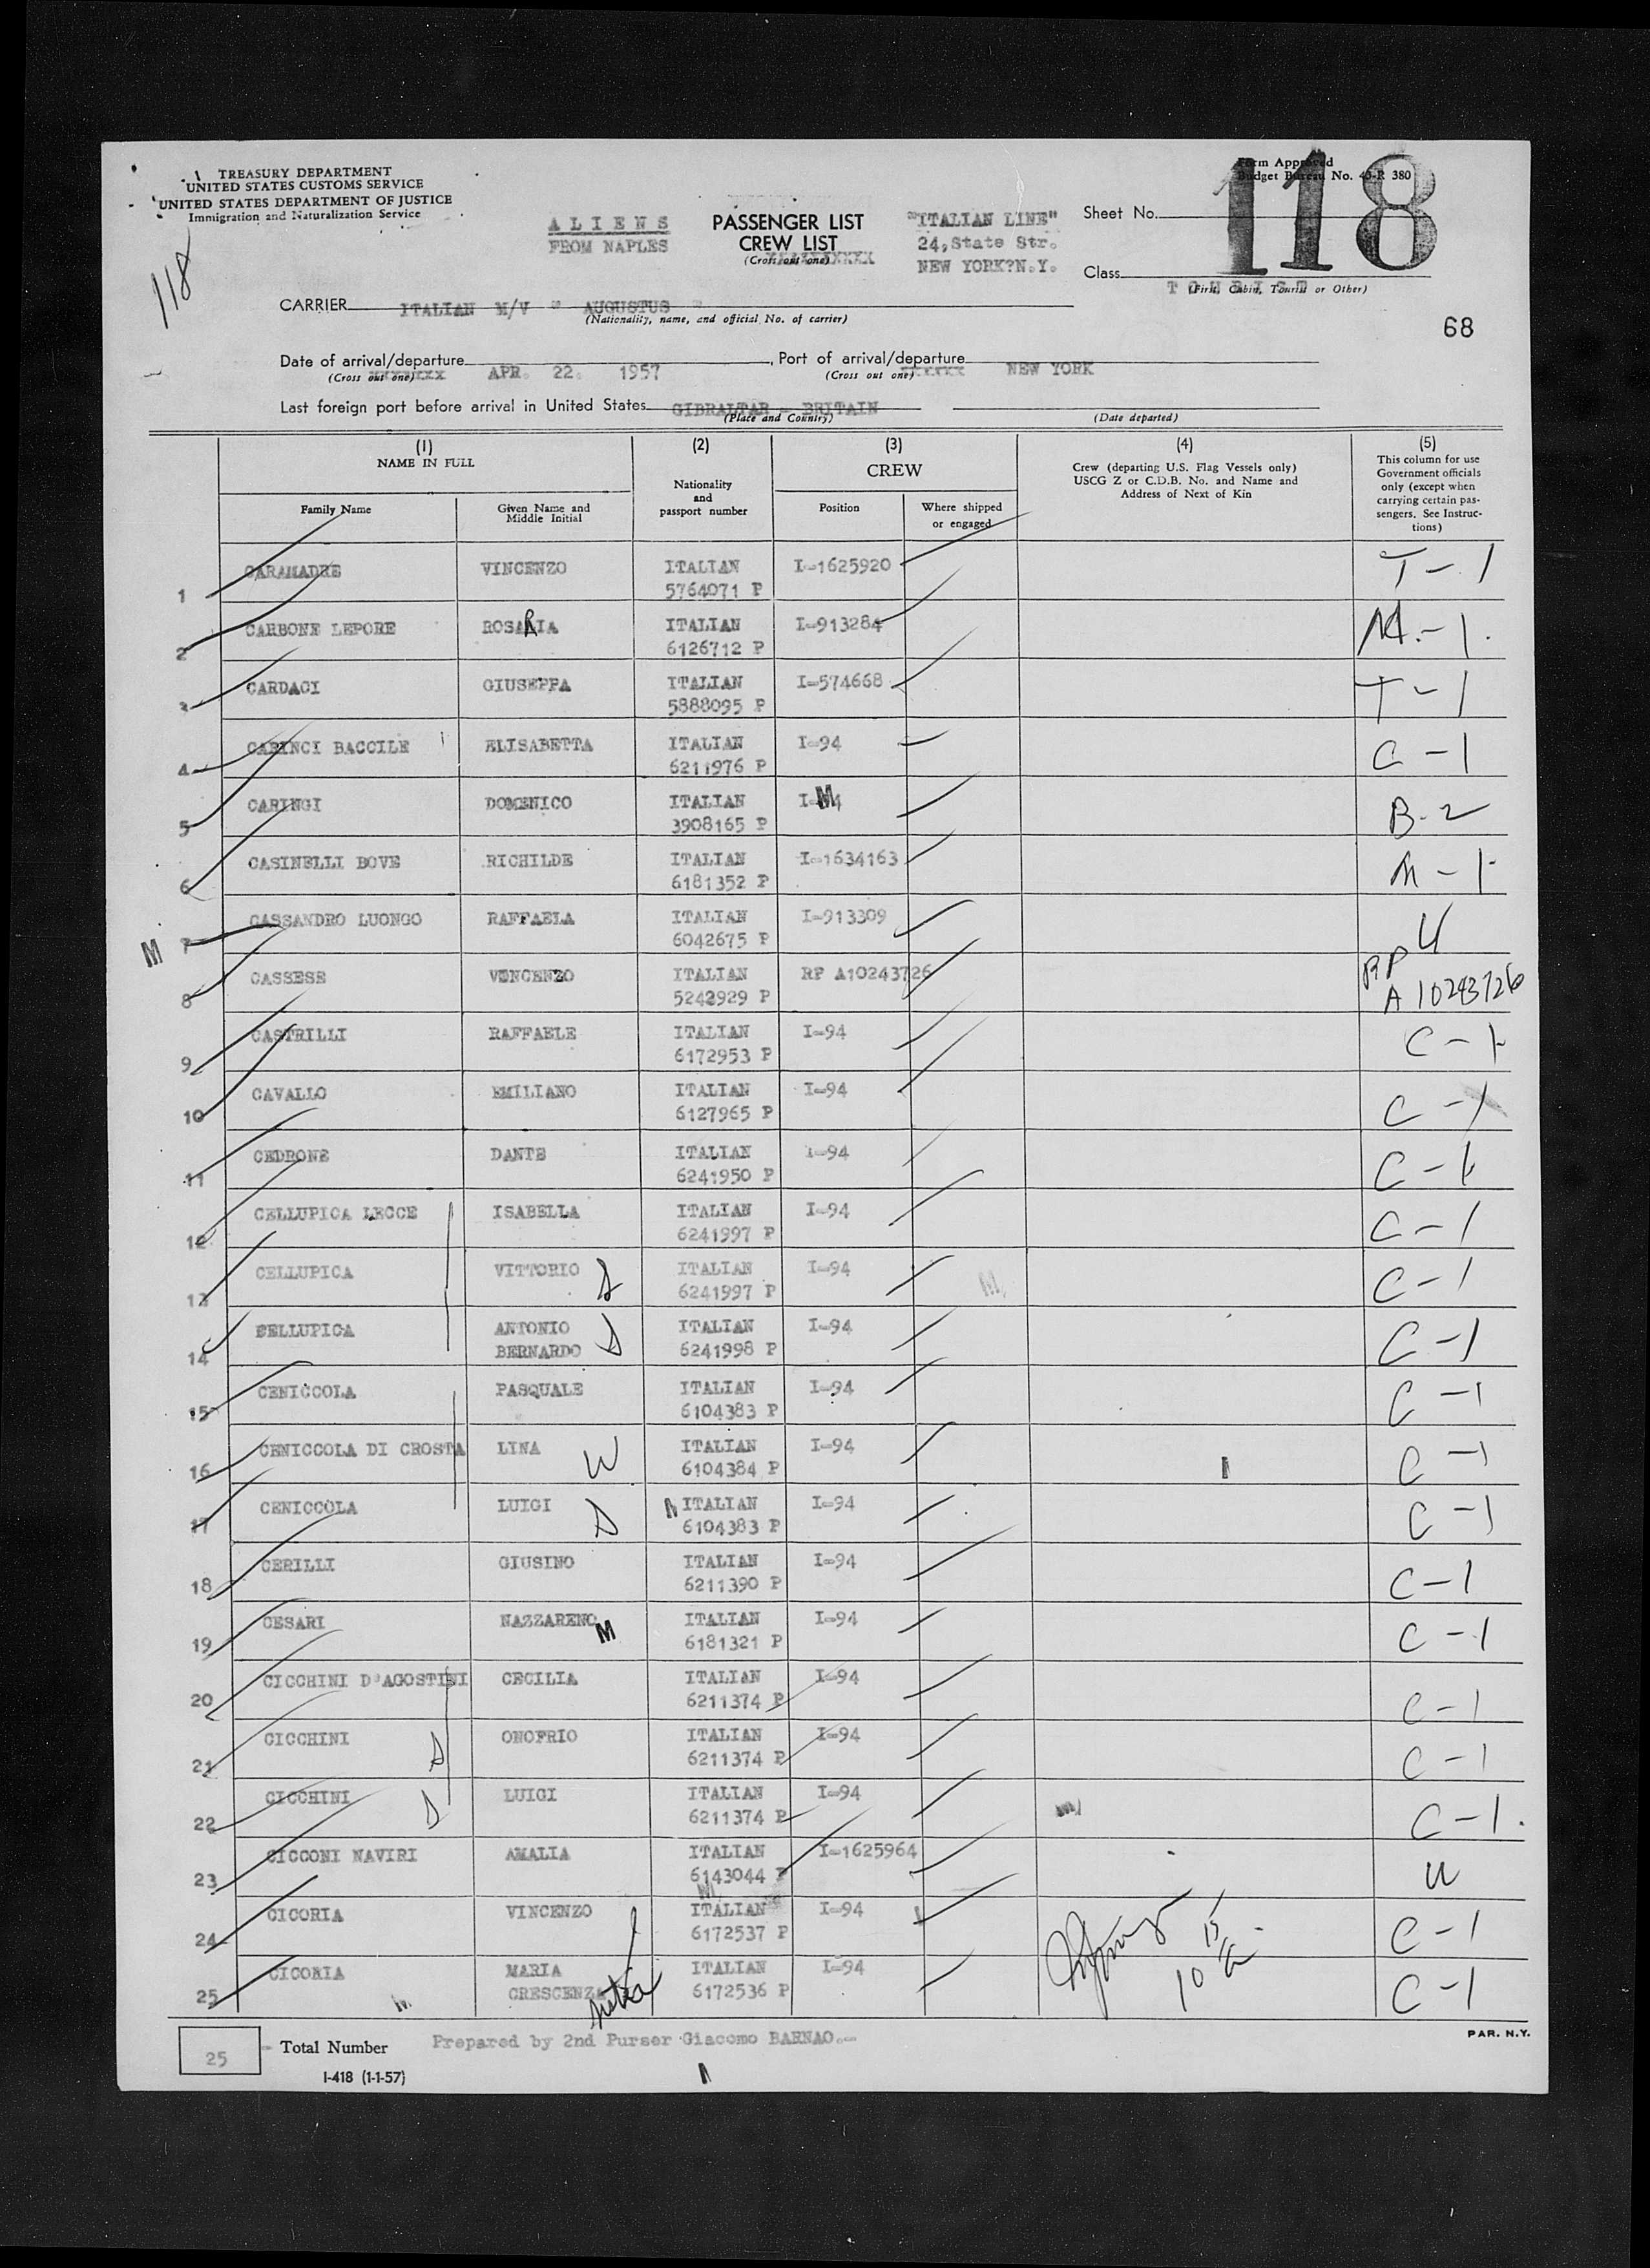 TREASURY DEPARTMENT
UNITED STATES CUSTOMS SERVICE
UNITED STATES DEPARTMENT OF JUSTICE
Immigration and Naturalization Service
118
ALIENS
FROM NAPLES
PASSENGER LIST
CREW LIST
(Cross out one)
"ITALIAN LINE"
24,State Str.
NEW YORK?N.Y.
Form Approved
Budget Bureau No. 43-R 380
Sheet No.
118
Class
TOURIST
(First, Cabin, Tourist or Other)
68
CARRIER ITALIAN M/V " AUGUSTUS "
(Nationality, name, and official No. of carrier)
Date of arrival/departure APR. 22. 1957, Port of arrival/departure NEW YORK
(Cross out one) (Cross out one)
Last foreign port before arrival in United States GIBRALTAR - BRITAIN
(Place and Country) (Date departed)
(1) NAME IN FULL
Family Name
Given Name and Middle Initial
(2) Nationality and passport number
(3) CREW
Position
Where shipped or engaged
(4) Crew (departing U.S. Flag Vessels only) USCG Z or C.D.B. No. and Name and Address of Next of Kin
(5) This column for use Government officials only (except when carrying certain passengers. See Instructions)
1 CARAMADRE VINCENZO ITALIAN 5764071 P I-1625920 T-1
2 CARBONE LEPORE ROSARIA ITALIAN 6126712 P I-913284 M.-1.
3 CARDACI GIUSEPPA ITALIAN 5888095 P I-574668 T-1
4 CARINCI BACCILE ELISABETTA ITALIAN 6211976 P I-94 C-1
5 CARINGI DOMENICO ITALIAN 3908165 P M B-2
6 CASINELLI BOVE RICHILDE ITALIAN 6181352 P I-1634163 M-1
M 7 CASSANDRO LUONGO RAFFAELA ITALIAN 6042675 P I-913309 U
8 CASSESE VENCENZO ITALIAN 5242929 P RP A10243726 RP A10243726
9 CASTRILLI RAFFAELE ITALIAN 6172953 P I-94 C-1
10 CAVALLO EMILIANO ITALIAN 6127965 P I-94 C-1
11 CEDRONE DANTE ITALIAN 6241950 P I-94 C-1
12 CELLUPICA LECCE ISABELLA ITALIAN 6241997 P I-94 C-1
13 CELLUPICA VITTORIO S ITALIAN 6241997 P I-94 C-1
14 BELLUPICA ANTONIO BERNARDO S ITALIAN 6241998 P I-94 C-1
15 CENICCOLA PASQUALE ITALIAN 6104383 P I-94 C-1
16 CENICCOLA DI CROSTA LINA W ITALIAN 6104384 P I-94 C-1
17 CENICCOLA LUIGI S ITALIAN 6104383 P I-94 C-1
18 CERILLI GIUSINO ITALIAN 6211390 P I-94 C-1
19 CESARI NAZZARENO M ITALIAN 6181321 P I-94 C-1
20 CICCHINI D'AGOSTINI CECILIA ITALIAN 6211374 P I-94 C-1
21 CICCHINI S ONOFRIO ITALIAN 6211374 P I-94 C-1
22 CICCHINI S LUIGI ITALIAN 6211374 P I-94 C-1.
23 CICCONI NAVIRI AMALIA ITALIAN 6143044 P I-1625964 U
24 CICORIA VINCENZO ITALIAN 6172537 P I-94 C-1
25 CICORIA MARIA CRESCENZA ITALIAN 6172536 P I-94 C-1
25 Total Number Prepared by 2nd Purser Giacomo BARNAO.-
I-418 (1-1-57)
PAR. N.Y.